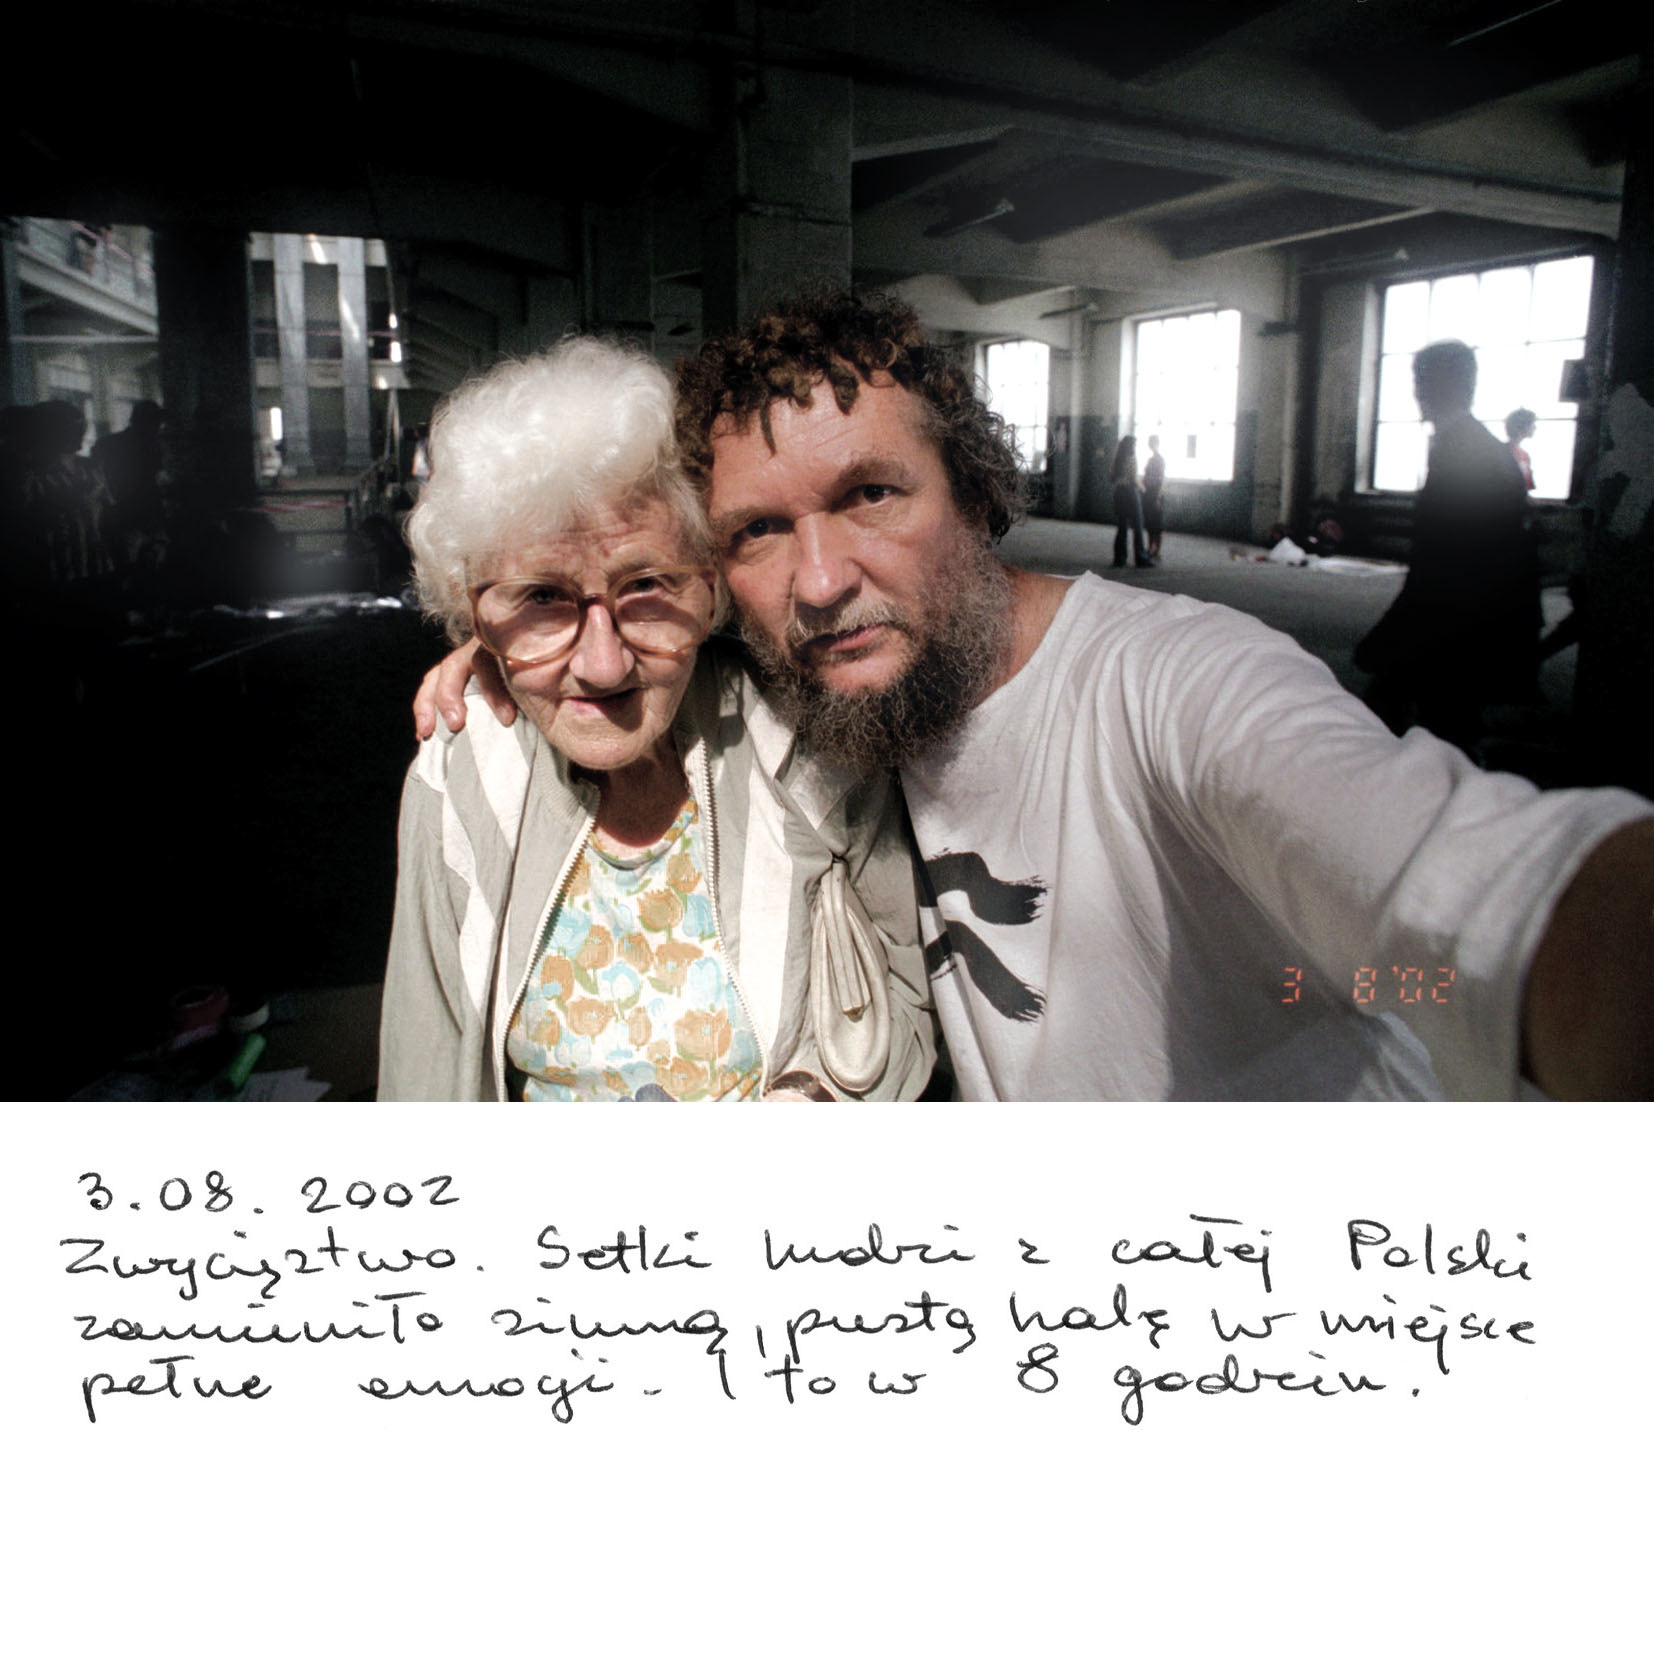 3 8'02
3.08.2002
Zwycięztwo. Setki ludzi z całej Polski
zamieniło zimną, pustą halę w miejsce
pełne emocji. I to w 8 godzin.